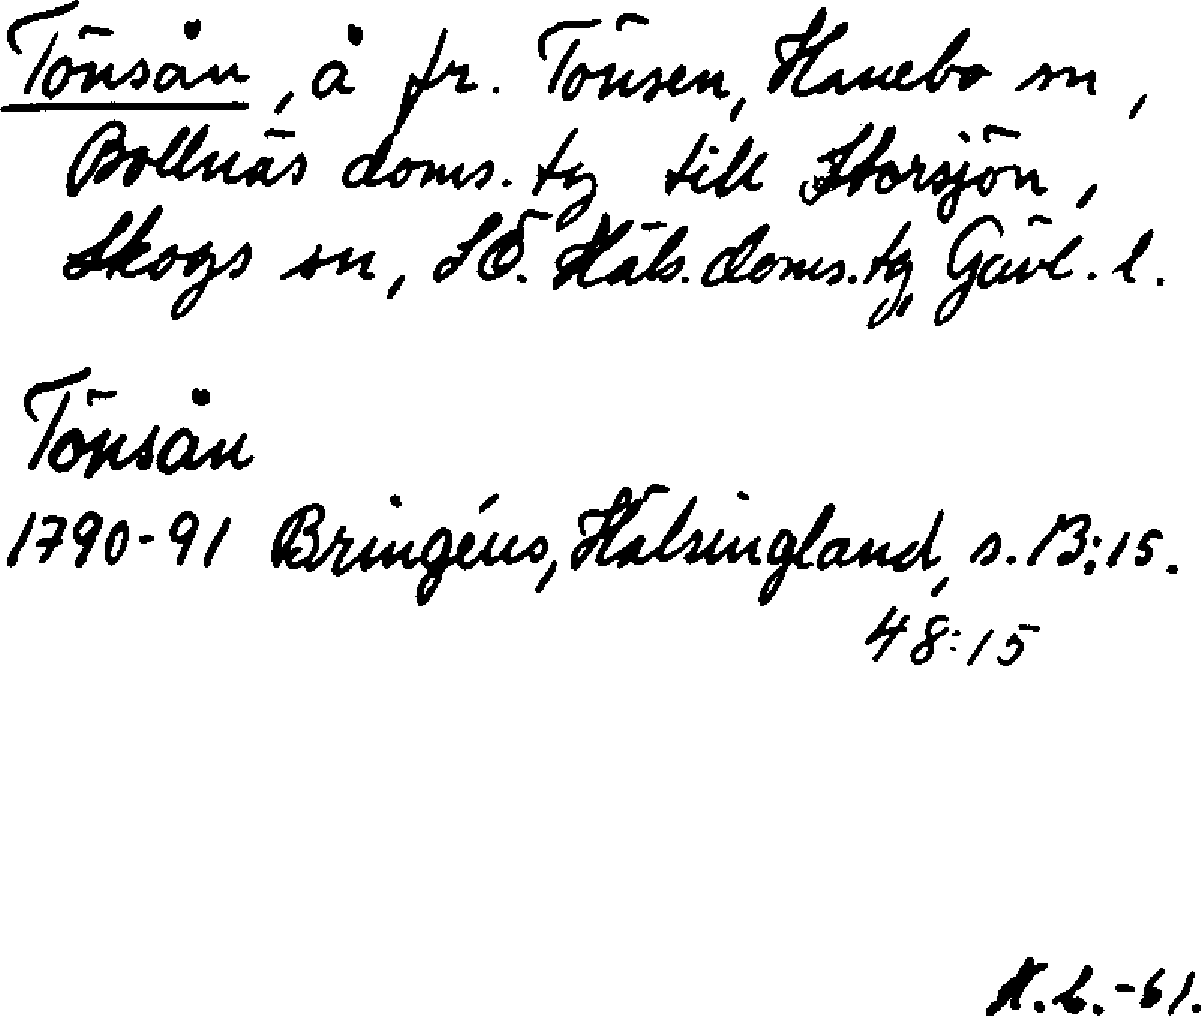 Tönsån, å fr. Tönsen, Hanebo sn,
Bollnäs doms. tg till Storsjön,
Skogs sn, SÖ. Häls. doms. tg, Gävl. l.
Tönsån
1790-91 Bringéus, Hälsingland, s. 13:15.
48:15
H.L.-61.